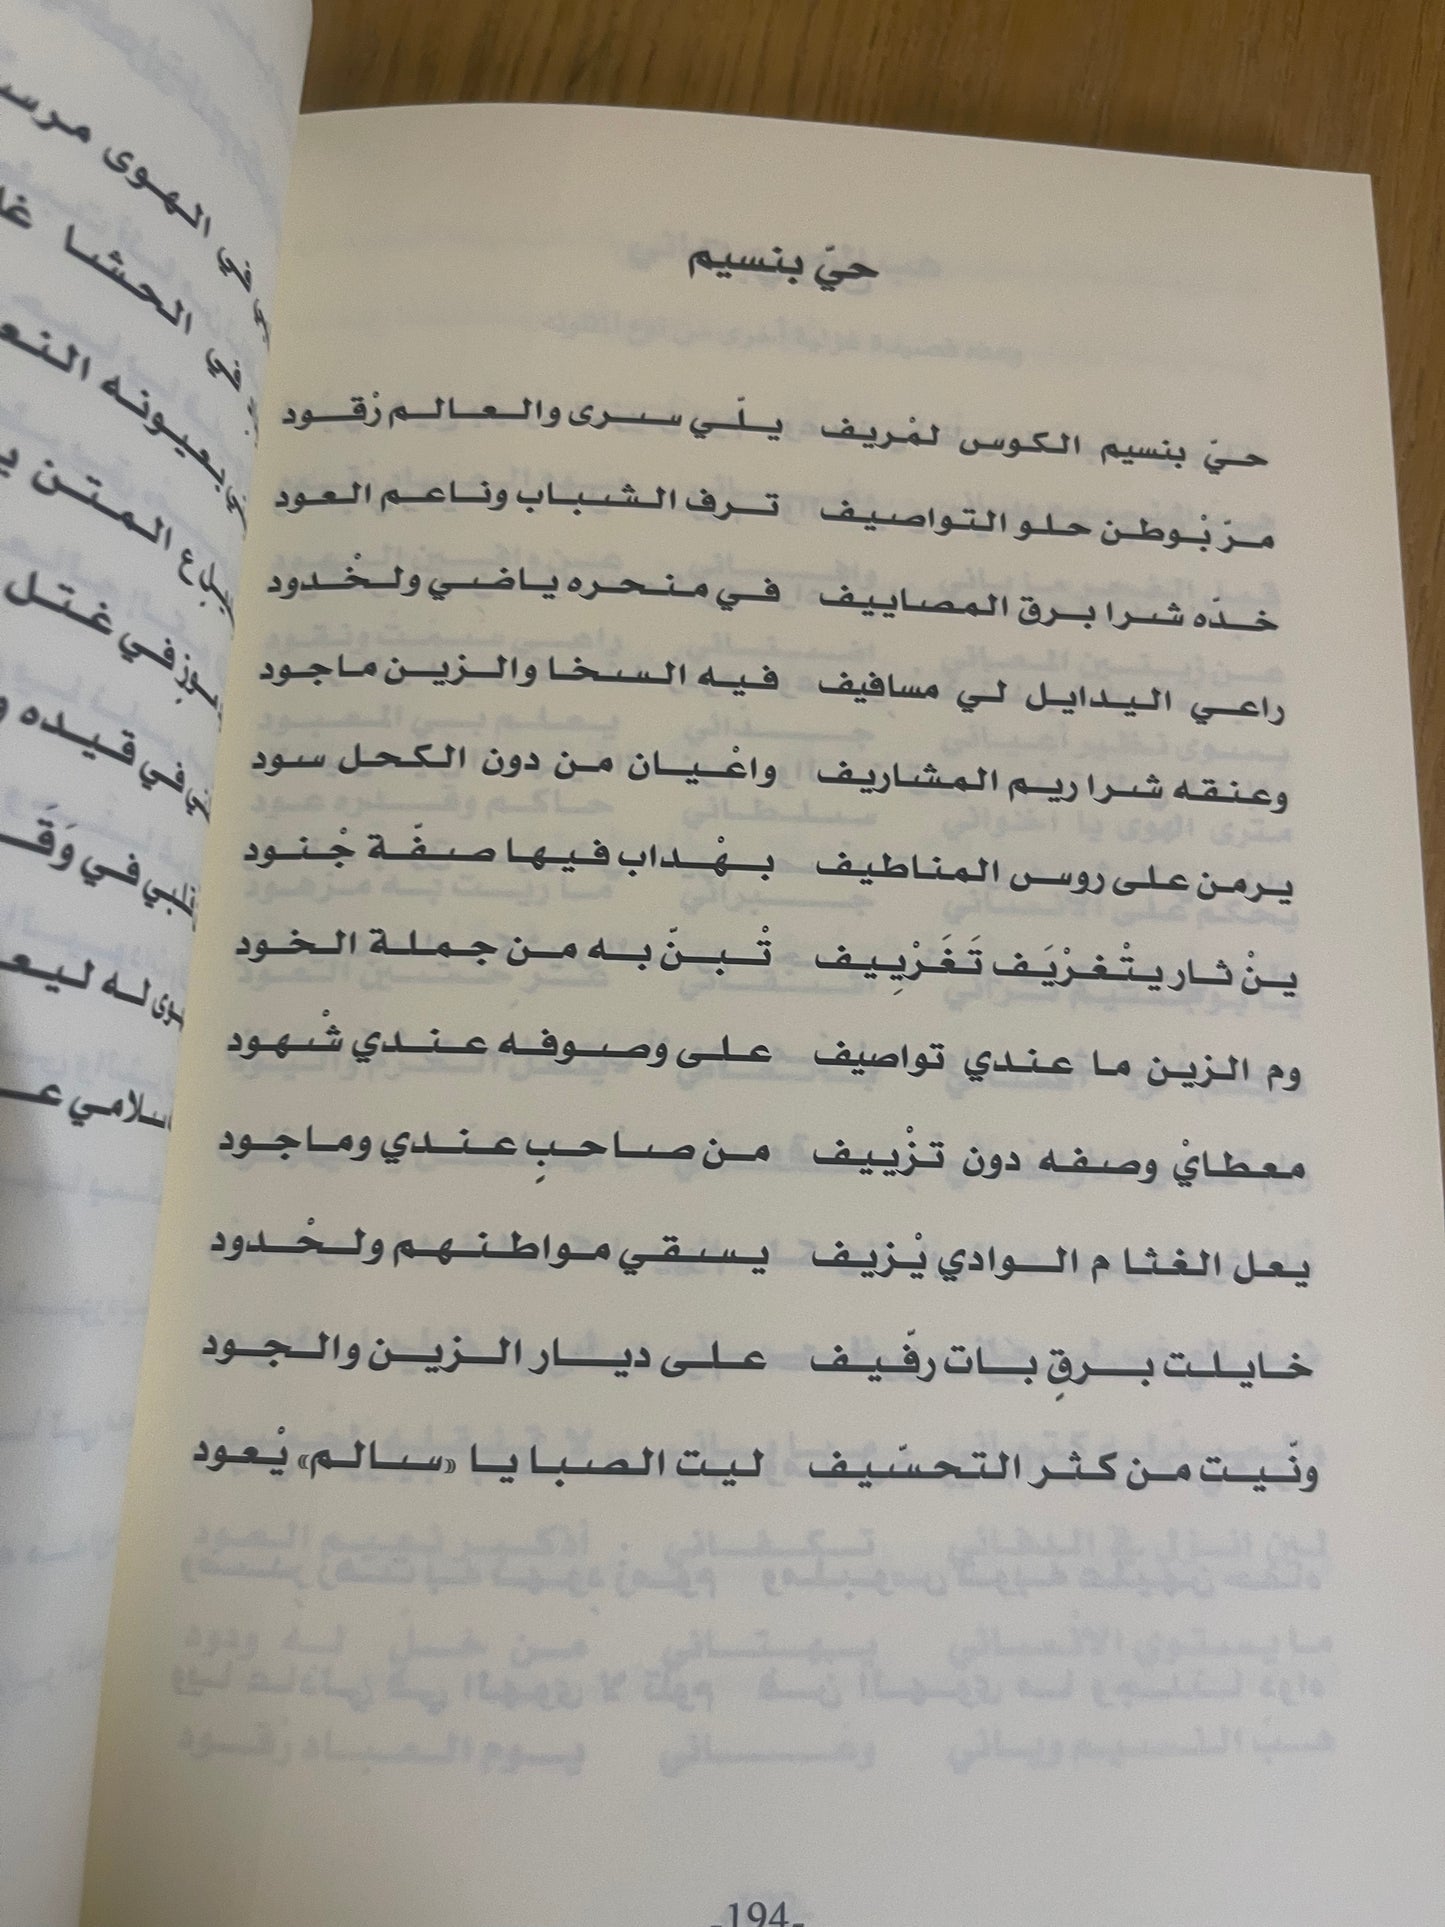 حيّ بنسيم
حيّ بنسيم الكوس لمْريف يلّي سرى والعالم رْقود
مرّ بْوطن حلو التواصيف ترف الشباب وناعم العود
خدّه شرا برق المصاييف في منحره ياضي ولخْدود
راعي اليدايل لي مسافيف فيه السخا والزين ماجود
وعنقه شرا ريم المشاريف واعْيان من دون الكحل سود
يرمن على روس المناطيف بهْداب فيها صفّة جْنود
ينْ ثار يتْغرْيَف تَغَرْيِيف تْبنّ به من جملة الخود
وم الزين ما عندي تواصيف على وصوفه عندي شْهود
معطايْ وصفه دون تزْييف من صاحبٍ عندي وماجود
يعل الغثا م الوادي يْزيف يسقي مواطنهم ولحْدود
خايلت برقٍ بات رفّيف على ديار الزين والجود
ونّيت من كثر التحسّيف ليت الصبا يا «سالم» يْعود
-194-
في الهوى
في الحشا
بعيونه
المتن
في غتل
في قيده
في وَقَـ
له